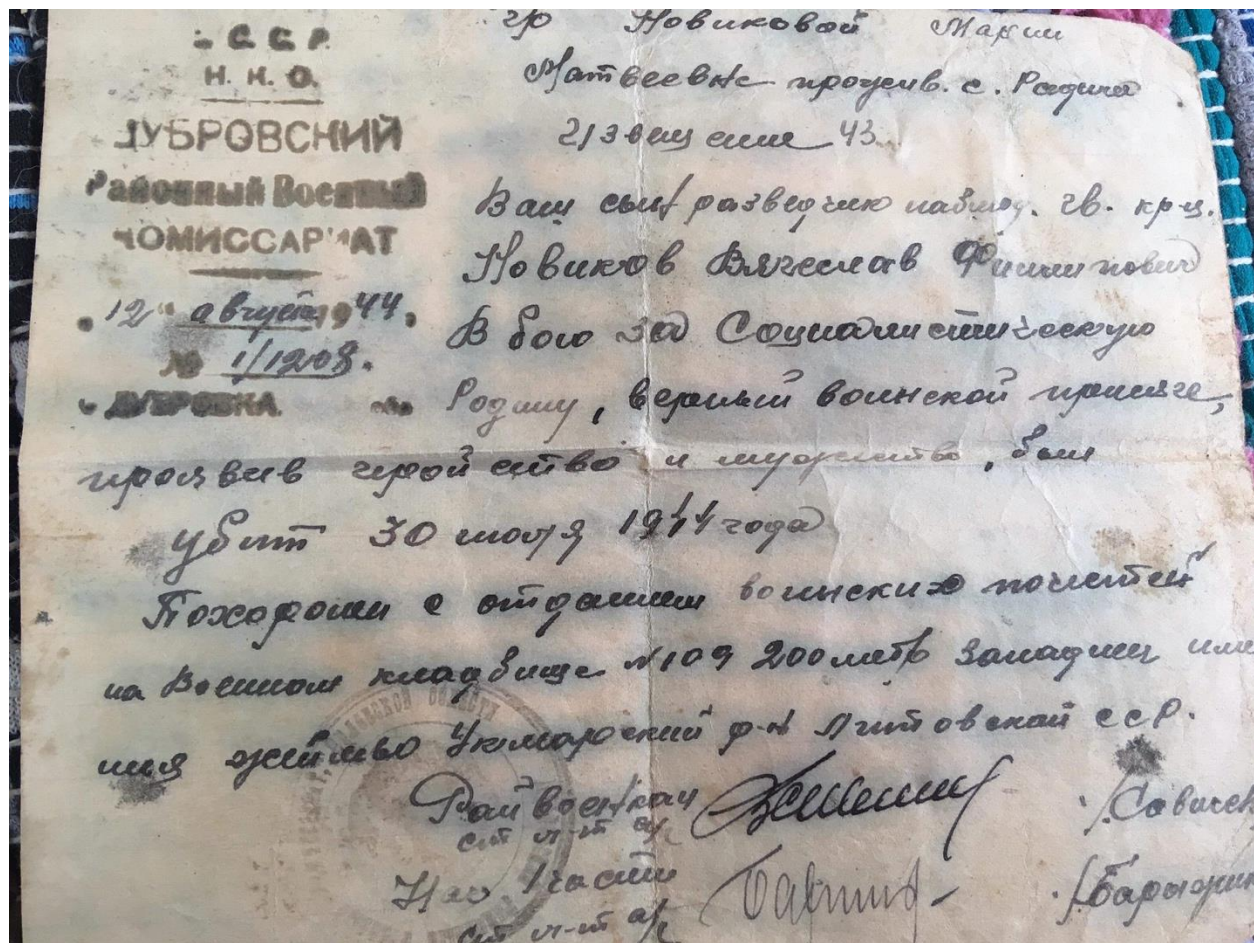 С.С.С.Р.
Н. К. О.
ДУБРОВСКИЙ
Районный Военный
КОМИССАРИАТ
"12" август 1944
№ 1/1208.
ДУБРОВКА
гр Новиковой Марии
Матвеевне прожив. с. Радичи
Извещение 43
Ваш сын разведчик наблюд. гв. кр-ц.
Новиков Вячеслав Филипович
В бою за Социалистическую
Родину, верный воинской присяге,
проявив геройство и мужество, был
убит 30 июля 1944 года
Похорошен с отданием воинских почестей
на Военном кладбище №109 200 метр западнее име
ния р-н Литовской ССР.
Райвоенком
ст л-т а/с
/Савичев
Нач 1 части
ст л-т а/с
ОБЛАСТИ